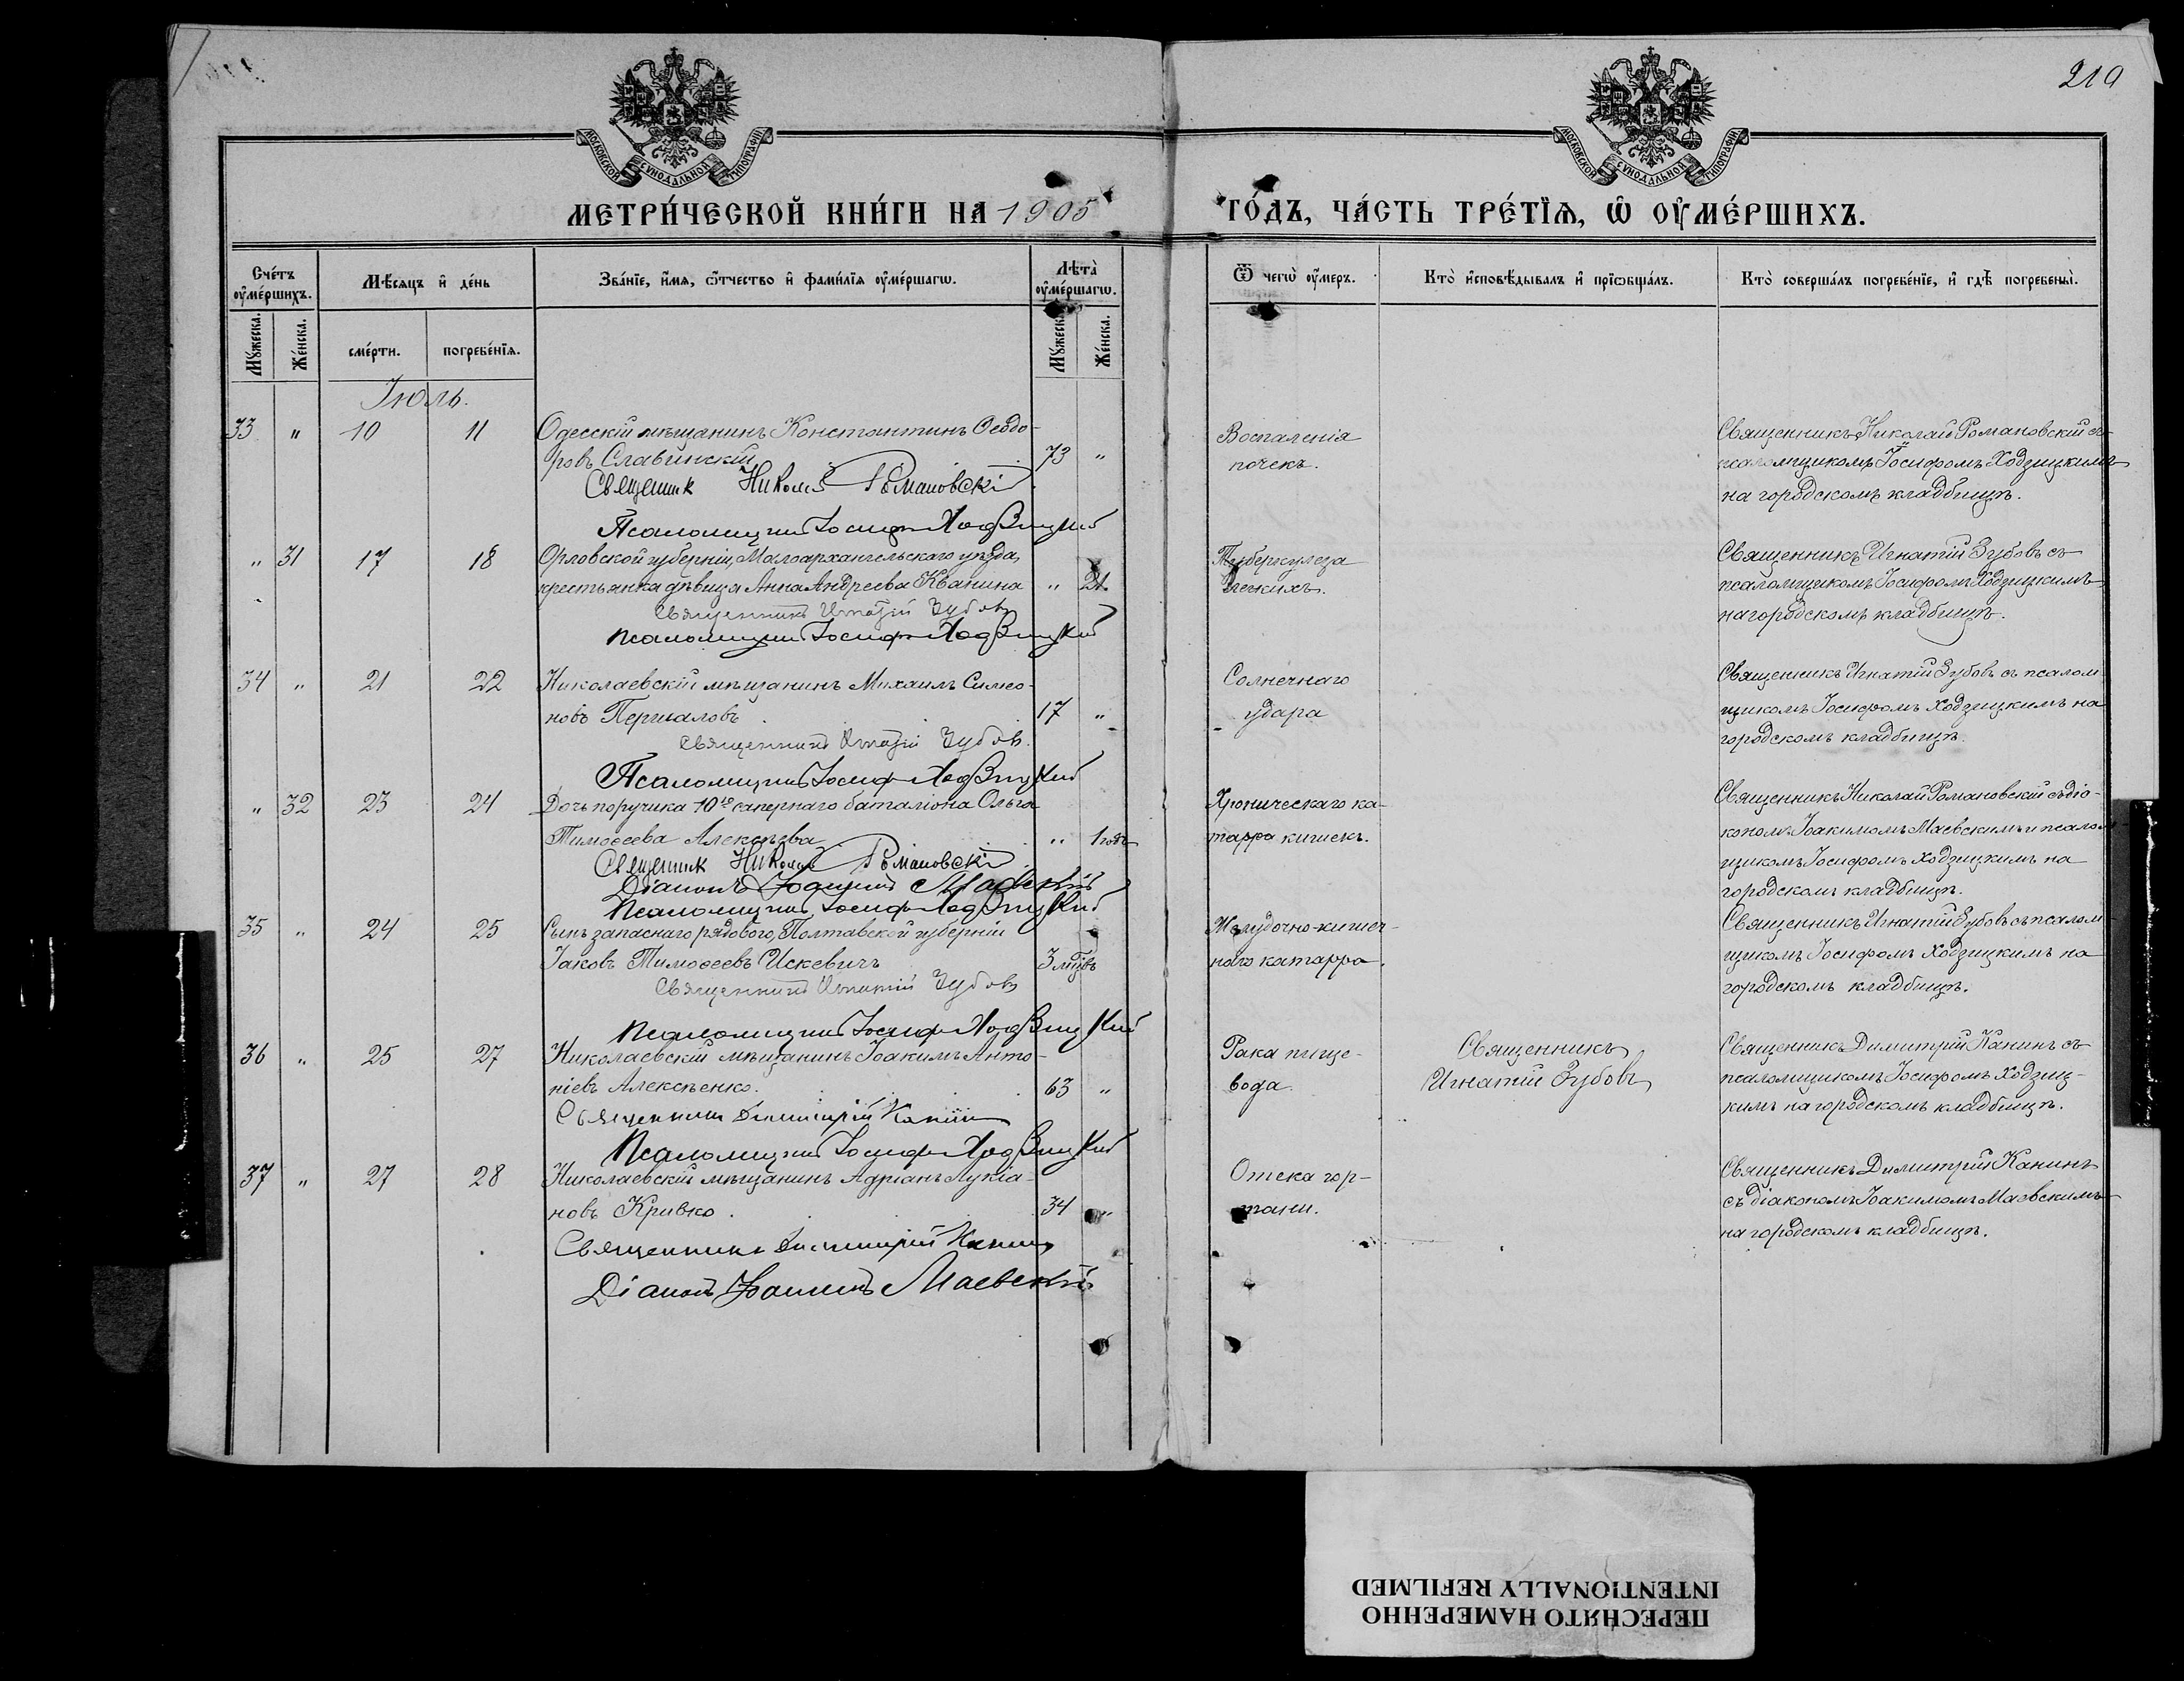 219
МОСКОВСКОЙ СУНОДАЛЬНОЙ ТИПОГРАФІИ
МОСКОВСКОЙ СУНОДАЛЬНОЙ ТИПОГРАФІИ
МЕТРИ́ЧЕСКОЙ КНИ́ГИ НА 1905
ГО́ДЪ, ЧА́СТЬ ТРЕ́ТЇѦ, Ѡ ОУ҆МЕ́РШИХЪ.
Сче́тъ оу҆ме́ршихъ.
Мѣ́сѧцъ и҆ де́нь
Зва́нїе, и҆́мѧ, ѻ҆́тчество и҆ фами́лїѧ оу҆ме́ршагѡ.
Лѣ̑та оу҆ме́ршагѡ.
Ѿ чегѡ̀ оу҆́меръ.
Кто̀ и҆сповѣ́дывалъ и҆ прїѡбща́лъ.
Кто̀ соверша́лъ погребе́нїе, и҆ гдѣ̀ погребены̀.
Мꙋ́жеска.
Же́нска.
сме́рти.
погребе́нїѧ.
Мꙋ́жеска.
Же́нска.
Іюль.
33 " 10 11 Одесскій мѣщанинъ Константинъ Ѳеодо-
ровъ Славинскій 73 "
Священник Николай Романовскій
Псаломщикъ Іосифъ Ходзицкій
Воспаленія
почекъ.
Священникъ Николай Романовскій съ
псаломщикомъ Іосифомъ Ходзицкимъ
на городскомъ кладбищѣ.
" 31 17 18 Орловской губерніи, Малоархангельскаго уѣзда,
крестьянка дѣвица Анна Андреева Кванина " 21.
Священникъ Игнатій Зубовъ
Псаломщикъ Іосифъ Ходзицкій
Туберкулеза
легкихъ.
Священникъ Игнатій Зубовъ съ
псаломщикомъ Іосифомъ Ходзицкимъ
на городскомъ кладбищѣ.
34 " 21 22 Николаевскій мѣщанинъ Михаилъ Симео-
новъ 17 "
Священникъ Игнатій Зубовъ.
Псаломщикъ Іосифъ Ходзицкій
Солнечнаго
удара
Священникъ Игнатій Зубовъ съ псалом-
щикомъ Іосифомъ Ходзицкимъ на
городскомъ кладбищѣ.
" 32 23 24 Дочь поручика 10го сапернаго баталіона Ольга
Тимоѳеева Алексѣева " 1 годъ
Священник Николай Романовскій
Діаконъ Іоакимъ Маевскій
Псаломщикъ Іосифъ Ходзицкій
Хроническаго ка-
тарра кишекъ.
Священникъ Николай Романовскій съ діа-
кономъ Іоакимомъ Маевскимъ и псалом-
щикомъ Іосифомъ Ходзицкимъ на
городскомъ кладбищѣ.
35 " 24 25 Сынъ запаснаго рядового, Полтавской губерніи
Іаковъ Тимоѳеевъ Искевичъ 3 мцвъ
Священникъ Игнатій Зубовъ
Псаломщикъ Іосифъ Ходзицкій
Желудочно-кишеч-
наго катарра.
Священникъ Игнатій Зубовъ съ псалом-
щикомъ Іосифомъ Ходзицкимъ на
городскомъ кладбищѣ.
36 " 25 27 Николаевскій мѣщанинъ Іоакимъ Анто-
ніевъ Алексѣенко. 63 "
Священникъ Димитрій Канинъ
Псаломщикъ Іосифъ Ходзицкій
Рака пище-
вода.
Священникъ
Игнатій Зубовъ
Священникъ Димитрій Канинъ съ
псаломщикомъ Іосифомъ Ходзиц-
кимъ на городскомъ кладбищѣ.
37 " 27 28 Николаевскій мѣщанинъ Адріанъ Лукіа-
новъ Кривко. 34 "
Священникъ Димитрій Канинъ
Діаконъ Іоакимъ Маевскій
Отека гор-
тани.
Священникъ Димитрій Канинъ
съ діакономъ Іоакимомъ Маевскимъ
на городскомъ кладбищѣ.
ПЕРЕСНЯТО НАМЕРЕННО
INTENTIONALLY REFILMED